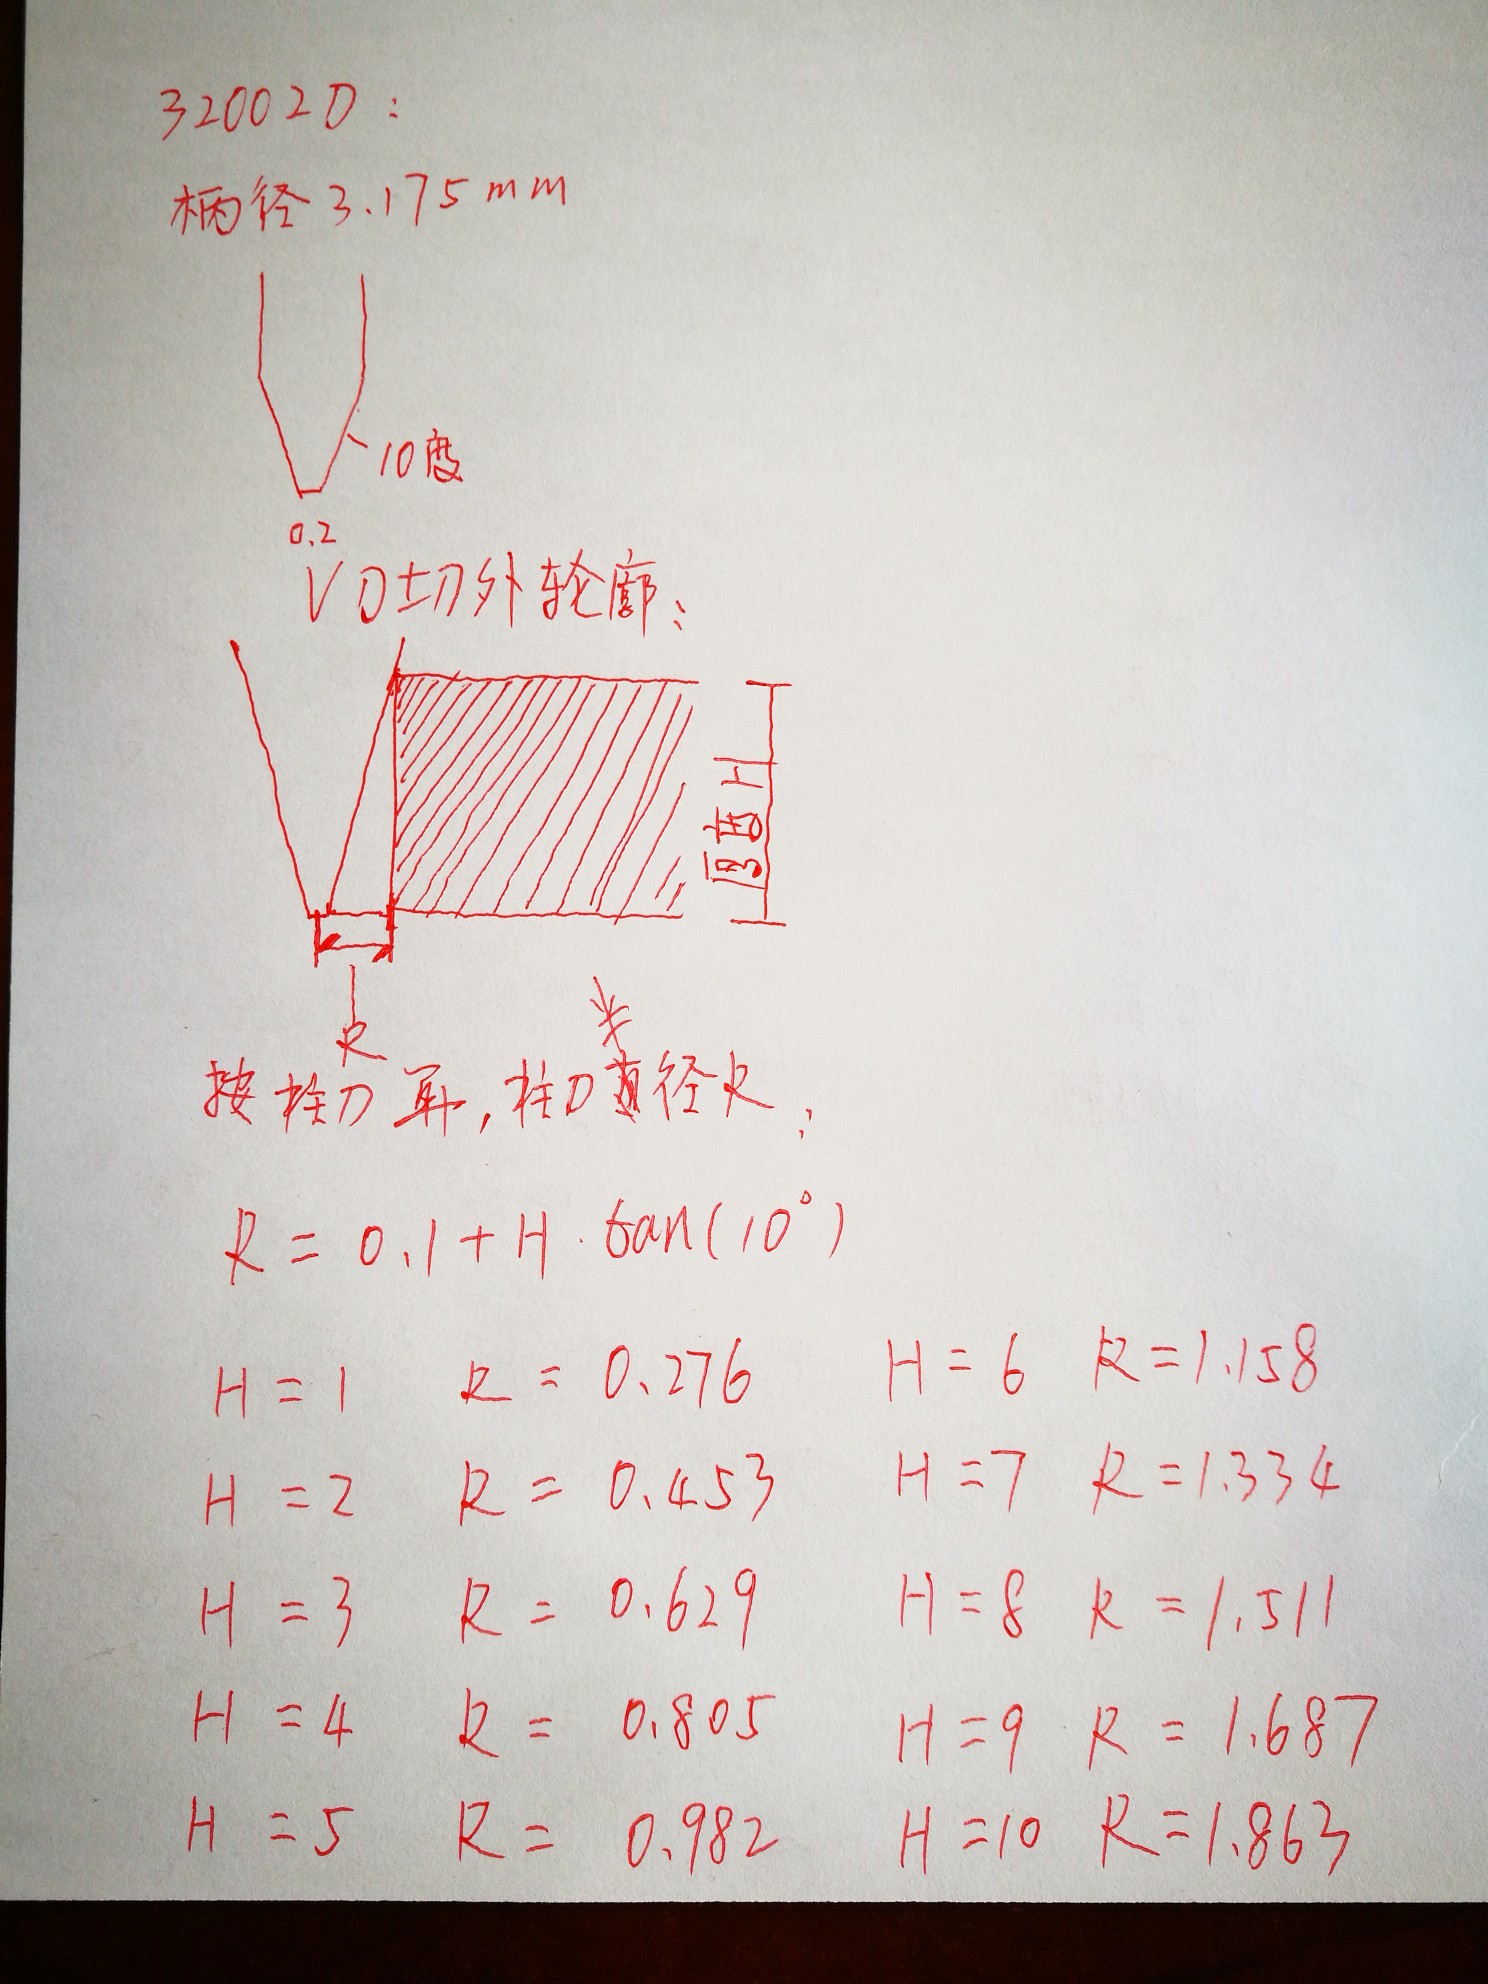 32002D:
柄径3.175mm
10度
0.2
V刀切外轮廓:
厚高H
R
半
按柱刀算,柱刀直径R:
R=0.1+H·tan(10°)
H=1 R=0.276 H=6 R=1.158
H=2 R=0.453 H=7 R=1.334
H=3 R=0.629 H=8 R=1.511
H=4 R=0.805 H=9 R=1.687
H=5 R=0.982 H=10 R=1.863